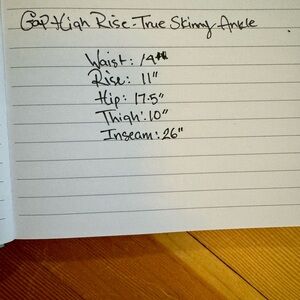 Gap High Rise - True Skinny Ankle
Waist: 14"
Rise: 11"
Hip: 17.5"
Thigh: 10"
Inseam: 26"